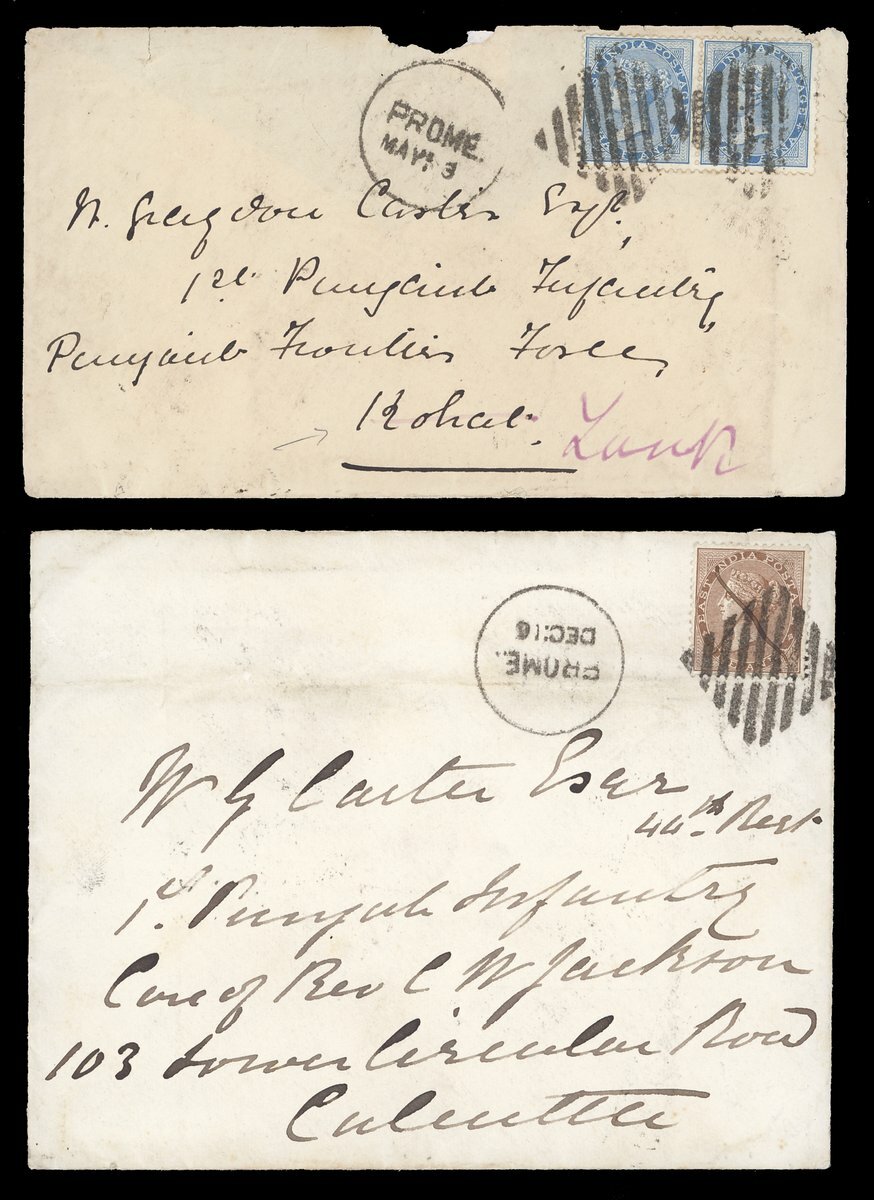 EAST INDIA POSTAGE
INDIA POSTAGE
PROME.
MAY 3
W. Graydon Carter Esqr.,
1st Punjaub Infantry,
Punjaub Frontier Force,
Kohat.
Tank
EAST INDIA POSTA
PROME.
DEC:16
W G Carter Esqr
44th Regt
1st. Punjab Infantry
Care of Rev C W Jackson
103 Lower Circular Road
Calcutta